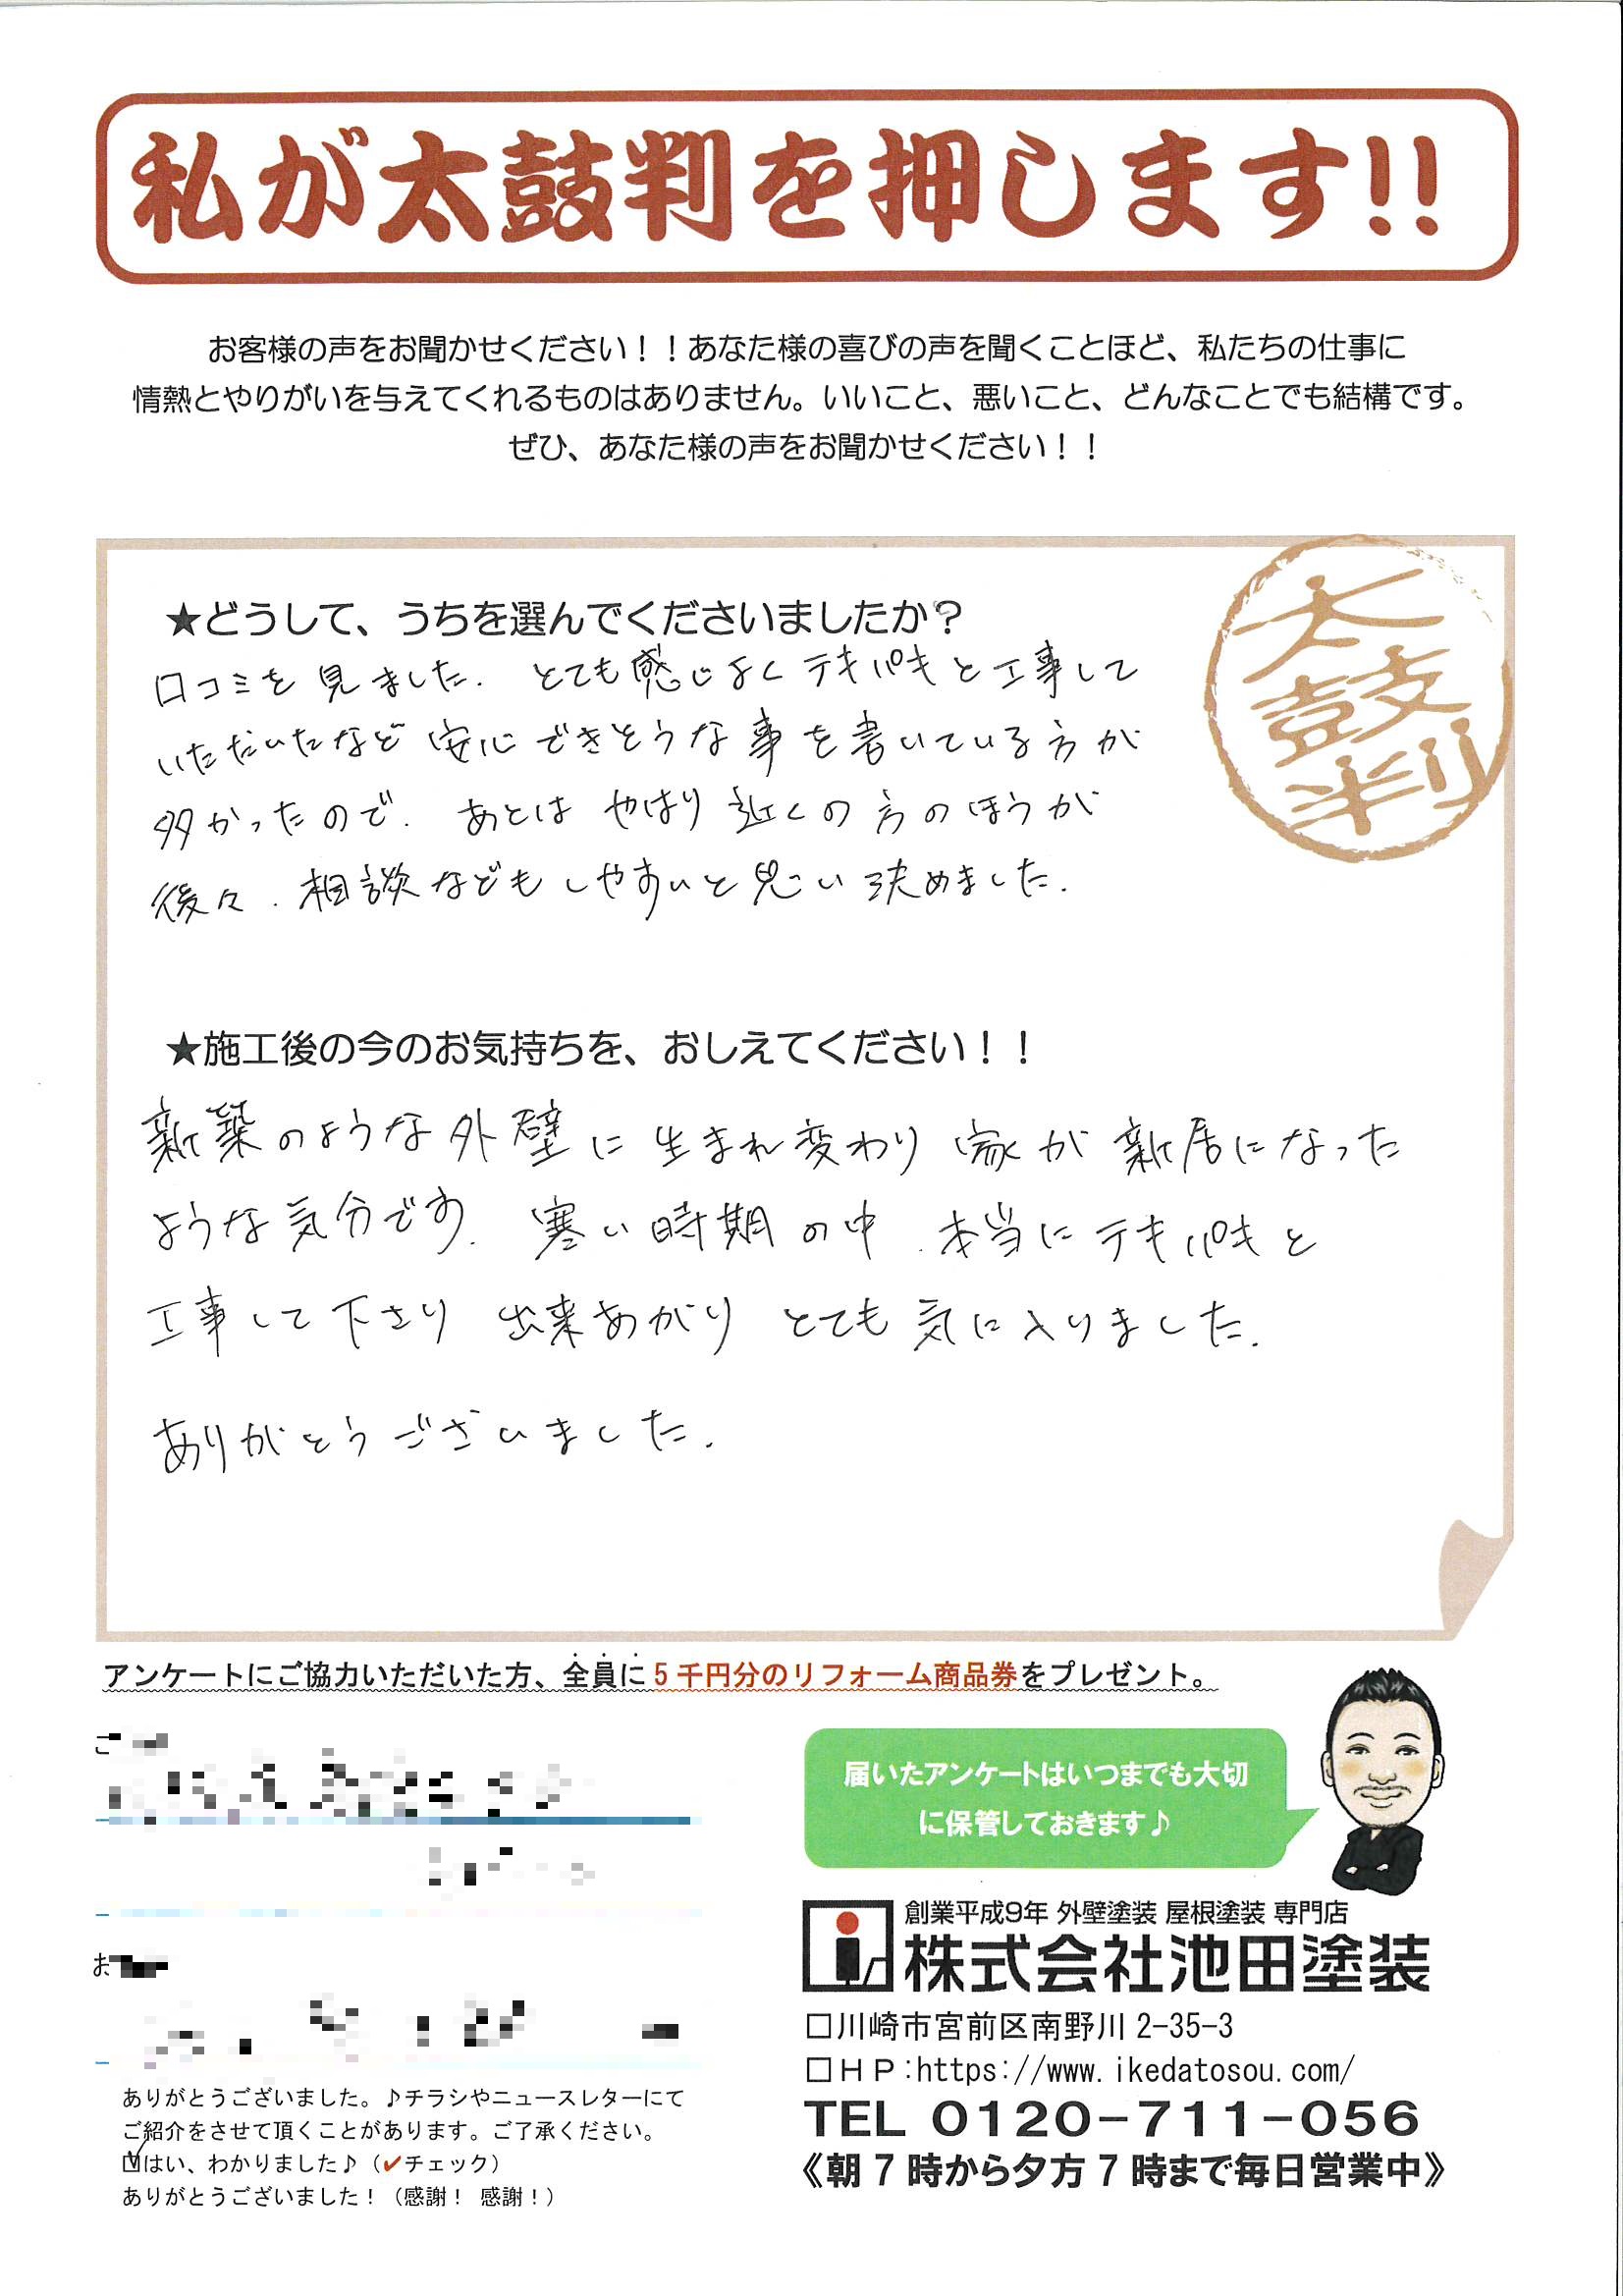 私が太鼓判を押します!!
お客様の声をお聞かせください！！あなた様の喜びの声を聞くことほど、私たちの仕事に
情熱とやりがいを与えてくれるものはありません。いいこと、悪いこと、どんなことでも結構です。
ぜひ、あなた様の声をお聞かせください！！
太鼓判
★どうして、うちを選んでくださいましたか？
口コミを見ました. とても感じよくテキパキと工事して
いただいたなど安心できそうな事を書いている方が
多かったので. あとはやはり近くの方のほうが
後々. 相談などもしやすいと思い決めました.
★施工後の今のお気持ちを、おしえてください！！
新築のような外壁に生まれ変わり家が新居になった
ような気分です. 寒い時期の中. 本当にテキパキと
工事して下さり 出来あがりとても気に入りました.
ありがとうございました.
アンケートにご協力いただいた方、全員に５千円分のリフォーム商品券をプレゼント。
ご
お
ありがとうございました。♪チラシやニュースレターにて
ご紹介をさせて頂くことがあります。ご了承ください。
☑はい、わかりました♪（✔チェック）
ありがとうございました！（感謝！ 感謝！）
届いたアンケートはいつまでも大切
に保管しておきます♪
創業平成9年 外壁塗装 屋根塗装 専門店
株式会社池田塗装
□川崎市宮前区南野川 2-35-3
□ＨＰ:https://www.ikedatosou.com/
TEL 0120-711-056
《朝７時から夕方７時まで毎日営業中》